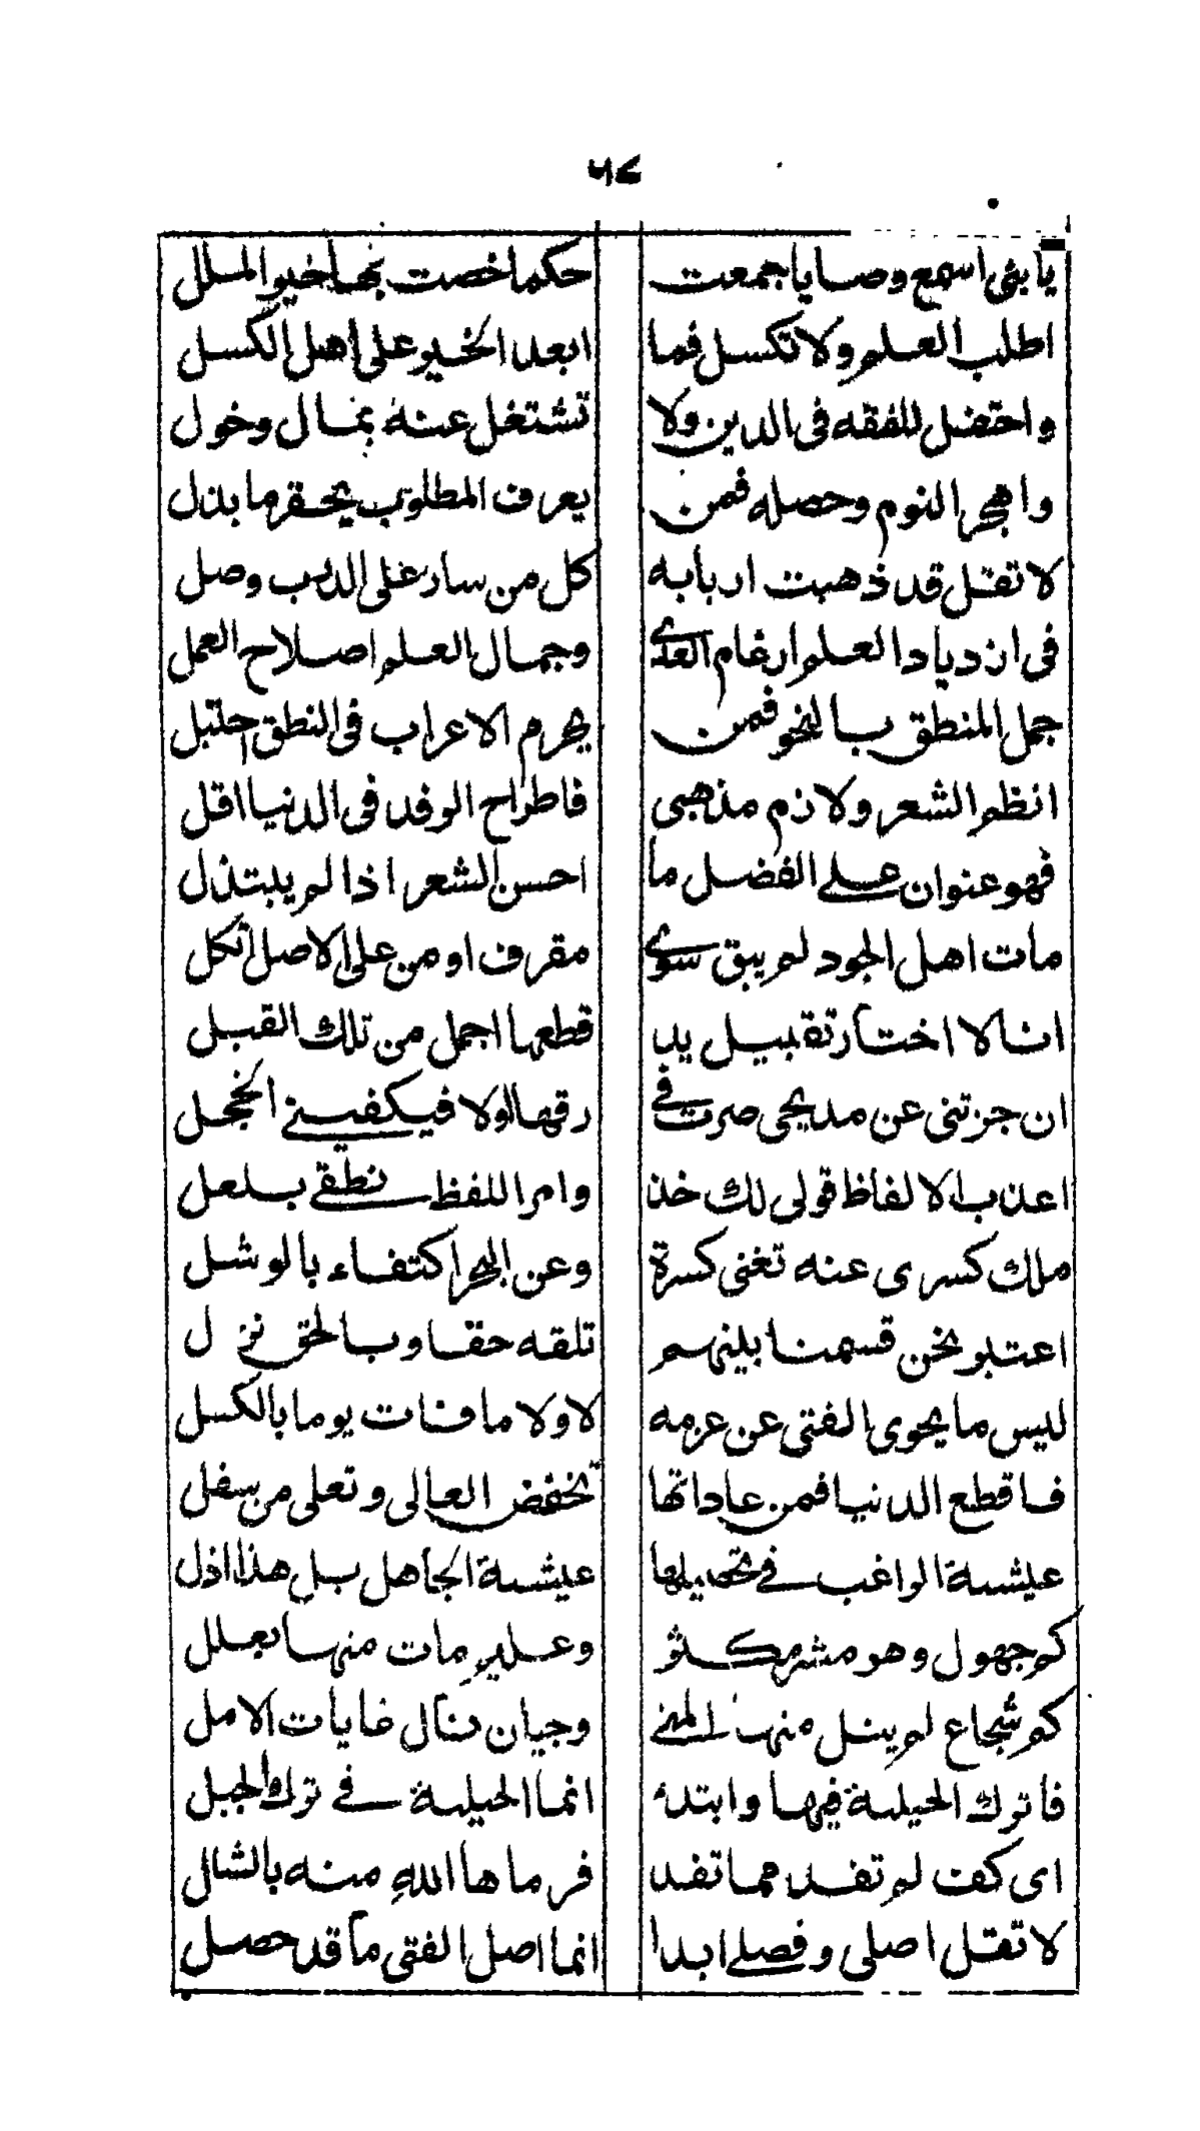 ٦٤
يا بني اسمع وصايا جمعت حكما خصت بها خير الملل
اطلب العلم ولا تكسل فما ابعد الخير على اهل الكسل
واحتفل للفقه فى الدين ولا تشتغل عنه بمال وخول
واهجر النوم وحصله فمن يعرف المطلوب يحقر ما بذل
لا تقل قد ذهبت اربابه كل من سار على الدرب وصل
فى ازدياد العلم ارغام العدى وجمال العلم اصلاح العمل
جمل المنطق بالنحو فمن يحرم الاعراب فى النطق اختبل
انظم الشعر ولازم مذهبى فاطراح الرفد فى الدنيا اقل
فهو عنوان على الفضل ما احسن الشعر اذا لم يبتذل
مات اهل الجود لم يبق سوى مقرف او من على الاصل اتكل
انا لا اختار تقبيل يد قطعها اجمل من تلك القبل
ان جزتنى عن مديحى صرت في رقها اولا فيكفيني الخجل
اعذب الالفاظ قولى لك خذ وامر اللفظ نطقي بلعل
ملك كسرى عنه تغنى كسرة وعن البحر اكتفاء بالوشل
اعتبر نحن قسمنا بينهم تلقه حقا وبالحق نزل
ليس ما يحوى الفتى عن عزمه لا ولا ما فات يوما بالكسل
فاقطع الدنيا فمن عاداتها تخفض العالى وتعلى من سفل
عيشة الراغب في تحصيلها عيشة الجاهل بل هذا اذل
كم جهول وهو مثر مكثر وعليم مات منها بعلل
كم شجاع لم ينل منها المنى وجبان نال غايات الامل
فاترك الحيلة فيها وابتدء انما الحيلة في ترك الحيل
اى كف لم تفد مما تفد فرماها الله منه بالشلل
لا تقل اصلى وفصلي ابدا انما اصل الفتى ما قد حصل